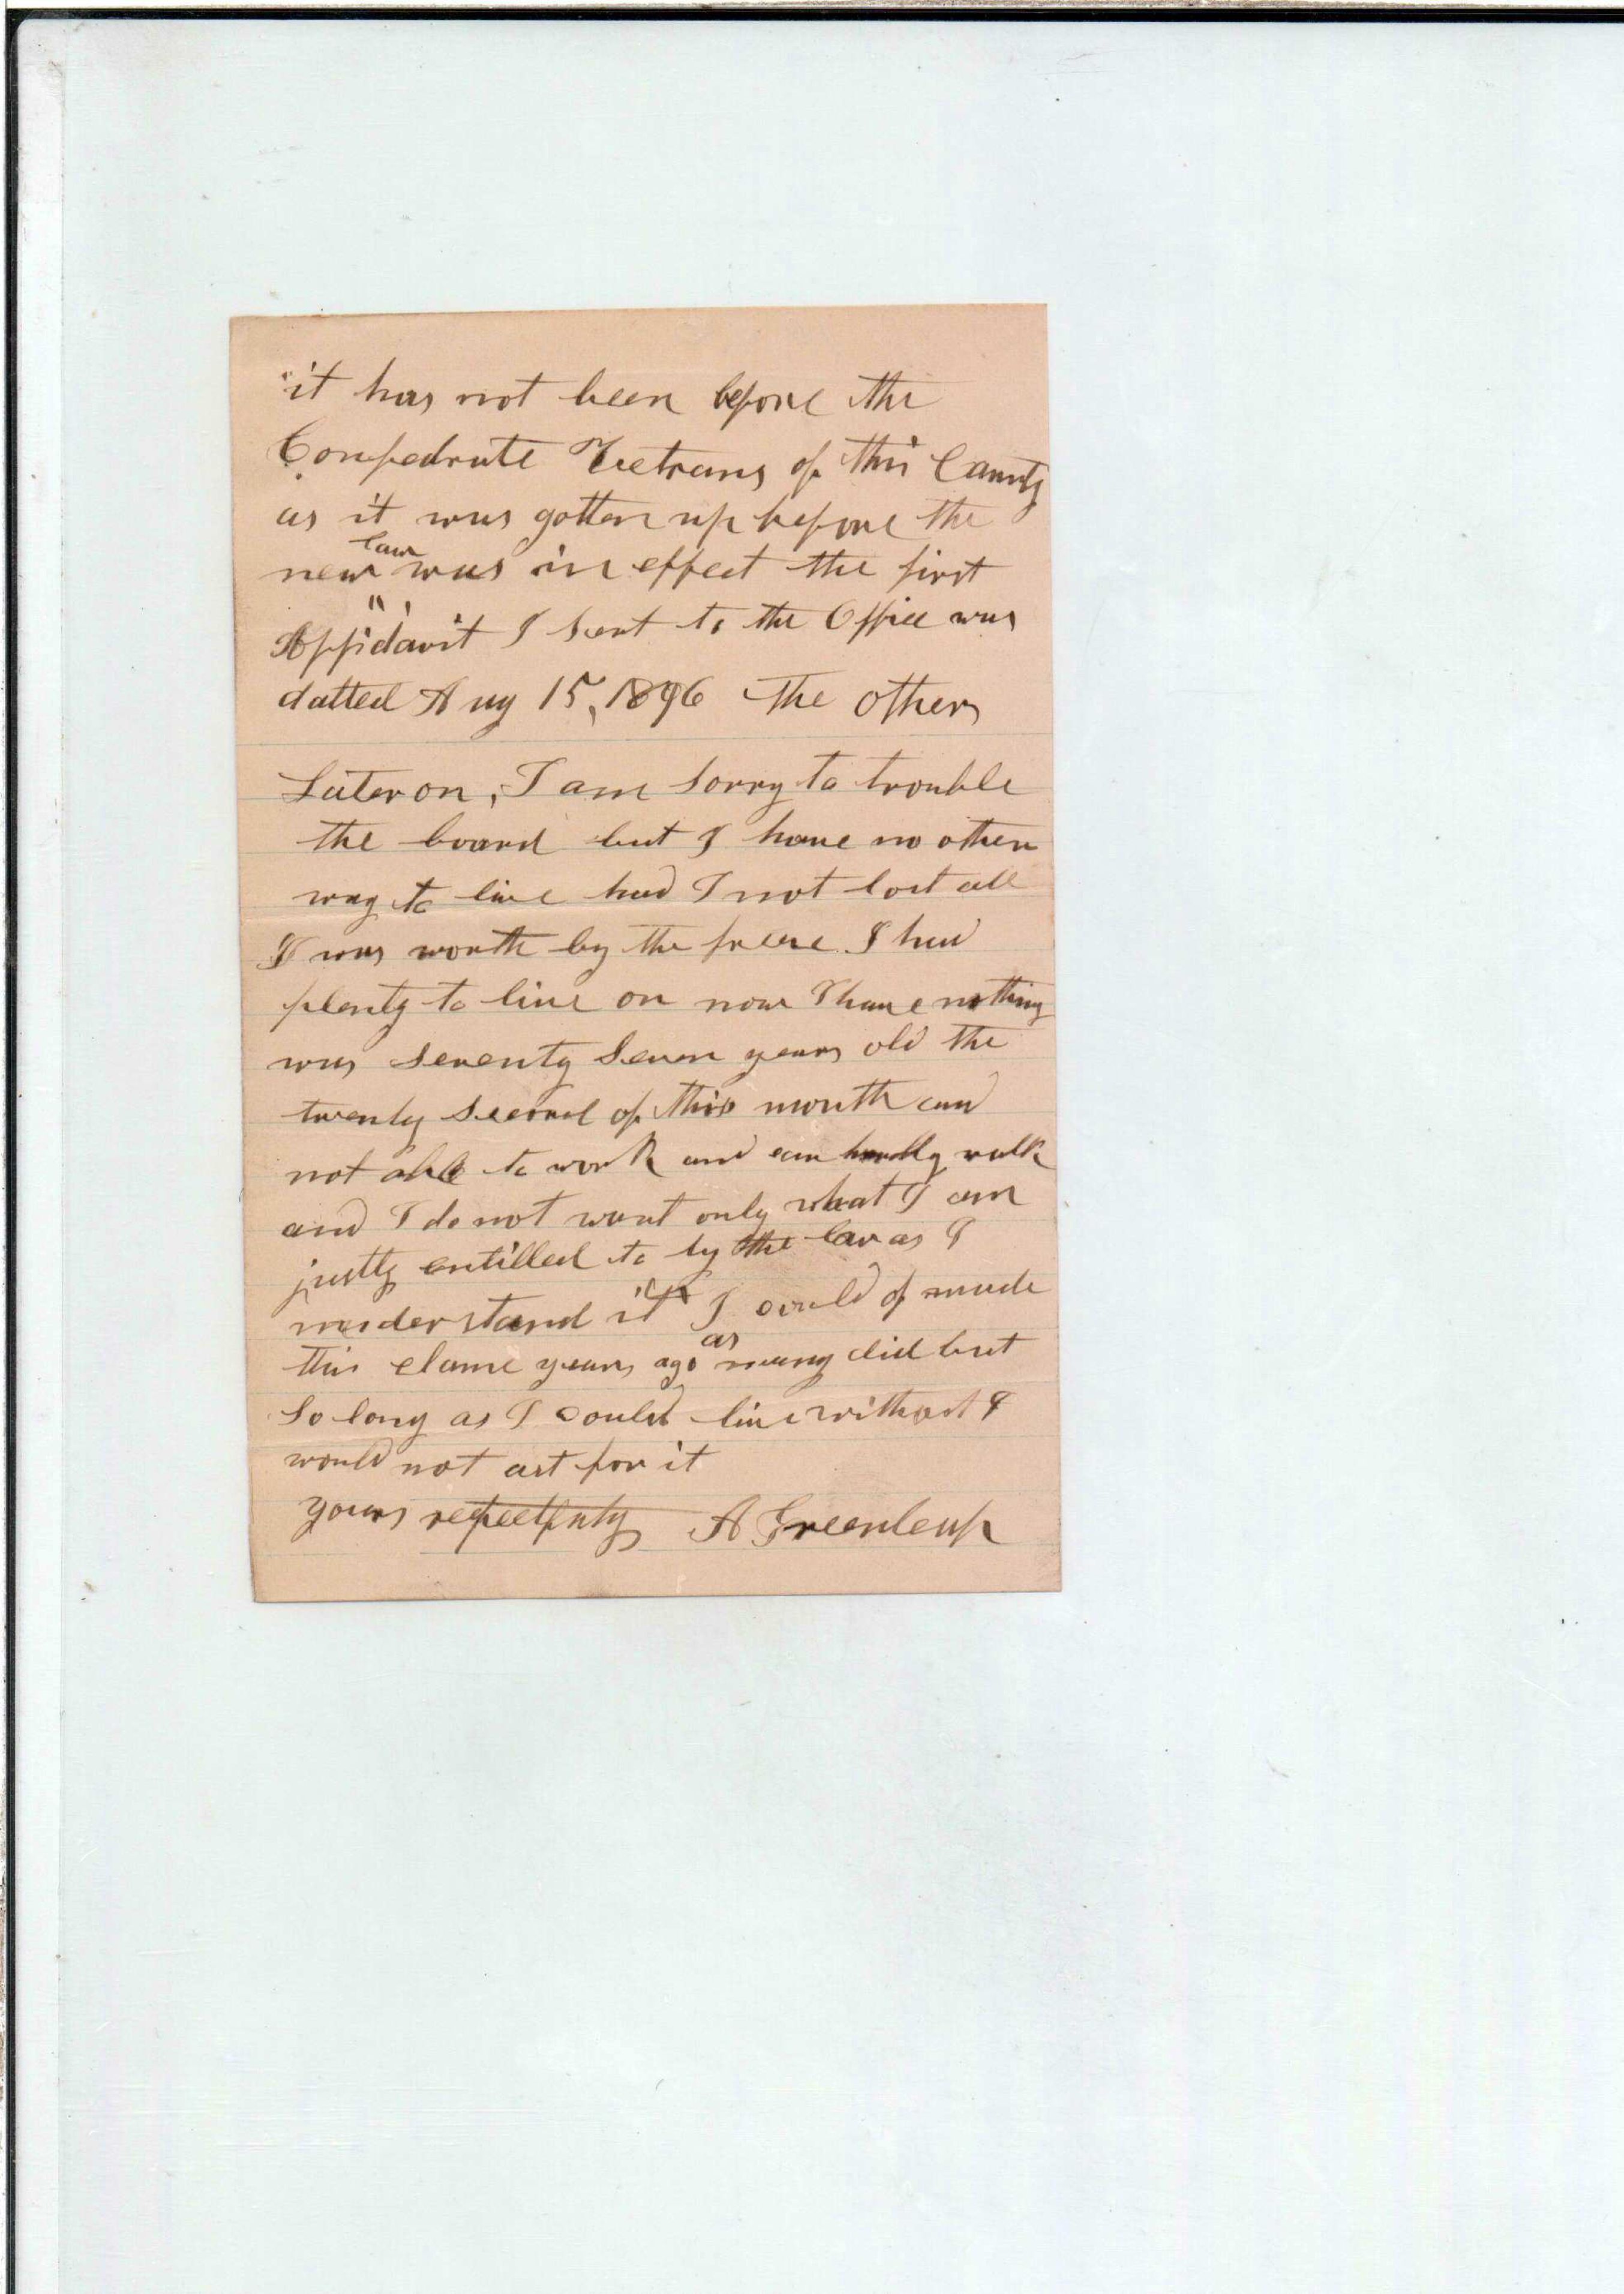 it has not been before the
Confedrate Vetrans of this County
as it was gotten up before the
new law was in effect the first
Affidavit I sent to the Office was
datted Aug 15, 1896 The others
Later on, I am sorry to trouble
the board but I have no other
way to live had I not lost all
I was worth by the freeze I had
plenty to live on now I have nothing
was seventy seven years old the
twenty second of this month and
not able to work and can hardly walk
and I do not want only what I am
justly entilled to by the law as I
understand it I could of made
this clame years ago as many did but
so long as I could live without I
would not ast for it
yours respectfuly A Greenleaf